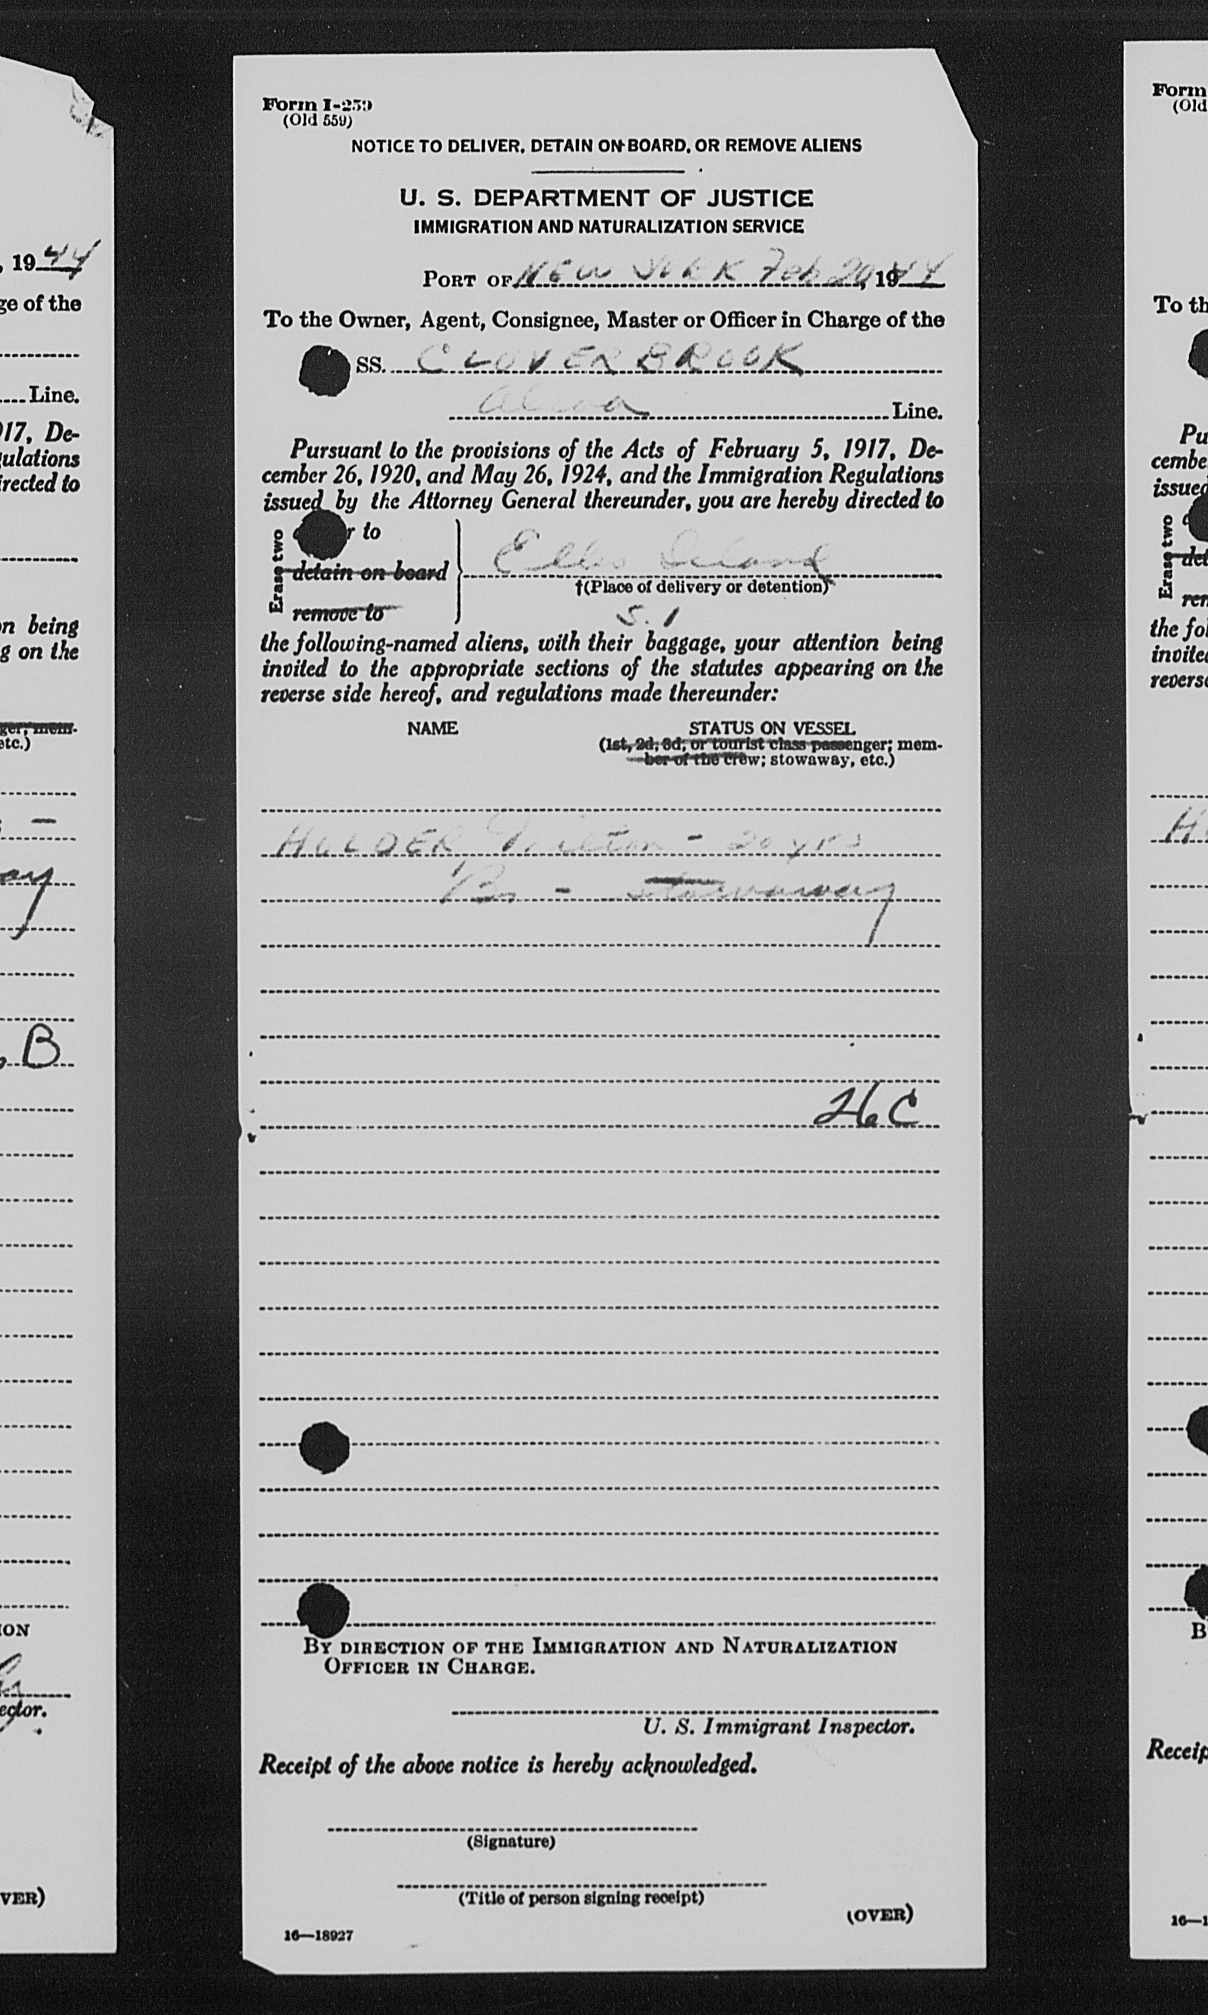 , 1944
ge of the
Line.
917, De-
gulations
irected to
on being
g on the
ger; mem-
etc.)
-
ay
B
ION
ector.
VER)
Form I-259
(Old 559)
NOTICE TO DELIVER, DETAIN ON BOARD, OR REMOVE ALIENS
U. S. DEPARTMENT OF JUSTICE
IMMIGRATION AND NATURALIZATION SERVICE
PORT OF NEW YORK Feb 20, 1944
To the Owner, Agent, Consignee, Master or Officer in Charge of the
SS. CLOVERBROOK
Alcoa Line.
Pursuant to the provisions of the Acts of February 5, 1917, De-
cember 26, 1920, and May 26, 1924, and the Immigration Regulations
issued by the Attorney General thereunder, you are hereby directed to
Erase two
r to
detain on board
remove to
Ellis Island
†(Place of delivery or detention)
S. 1
the following-named aliens, with their baggage, your attention being
invited to the appropriate sections of the statutes appearing on the
reverse side hereof, and regulations made thereunder:
NAME STATUS ON VESSEL
(1st, 2d, 3d, or tourist class passenger; mem-
ber of the crew; stowaway, etc.)
HOLDER Milton - 20 yrs
Br - stowaway
26 C
BY DIRECTION OF THE IMMIGRATION AND NATURALIZATION
OFFICER IN CHARGE.
U. S. Immigrant Inspector.
Receipt of the above notice is hereby acknowledged.
(Signature)
(Title of person signing receipt)
(OVER)
16—18927
Form
(Old
To th
Pu
cembe
issued
Erase two
det
ren
the fol
invited
reverse
H
B
Receip
16—1